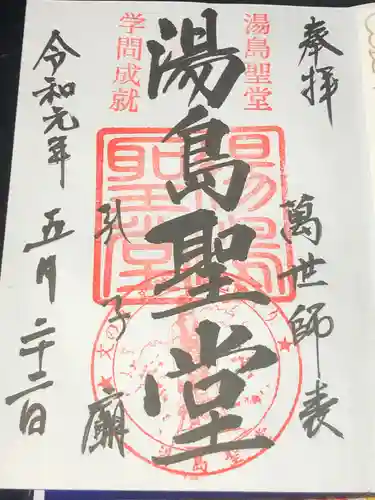 奉拝
湯島聖堂
萬世師表
湯島聖堂
学問成就
孔子廟
令和元年
五月二十二日
湯島聖堂
湯島聖堂